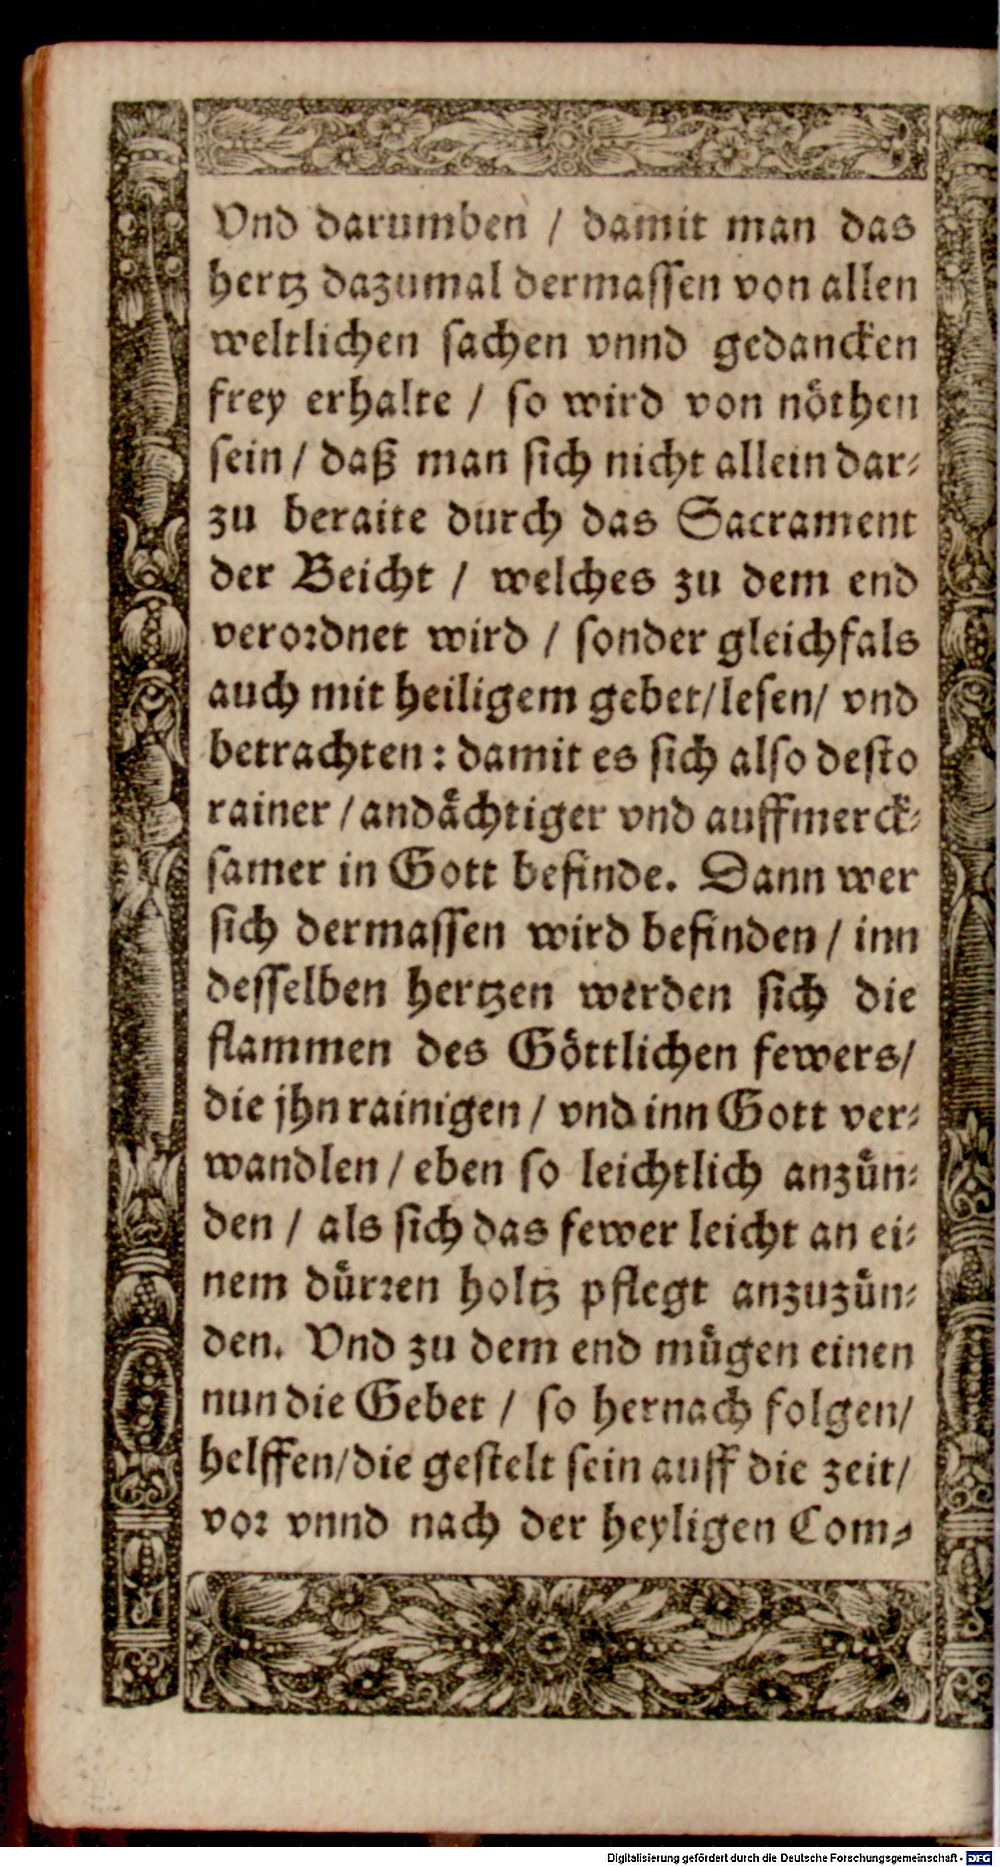 Vnd darumben / damit man das
hertz dazumal dermassen von allen
weltlichen sachen vnnd gedancken
frey erhalte / so wird von nöthen
sein / daß man sich nicht allein dar-
zu beraite durch das Sacrament
der Beicht / welches zu dem end
verordnet wird / sonder gleichfals
auch mit heiligem gebet/lesen/ vnd
betrachten: damit es sich also desto
rainer / andächtiger vnd auffmerck-
samer in Gott befinde. Dann wer
sich dermassen wird befinden / inn
desselben hertzen werden sich die
flammen des Göttlichen fewers/
die jhn rainigen / vnd inn Gott ver-
wandlen / eben so leichtlich anzün-
den / als sich das fewer leicht an ei-
nem dürren holtz pflegt anzuzün-
den. Vnd zu dem end mügen einen
nun die Gebet / so hernach folgen/
helffen/die gestelt sein auff die zeit/
vor vnnd nach der heyligen Com-
Digitalisierung gefördert durch die Deutsche Forschungsgemeinschaft - DFG